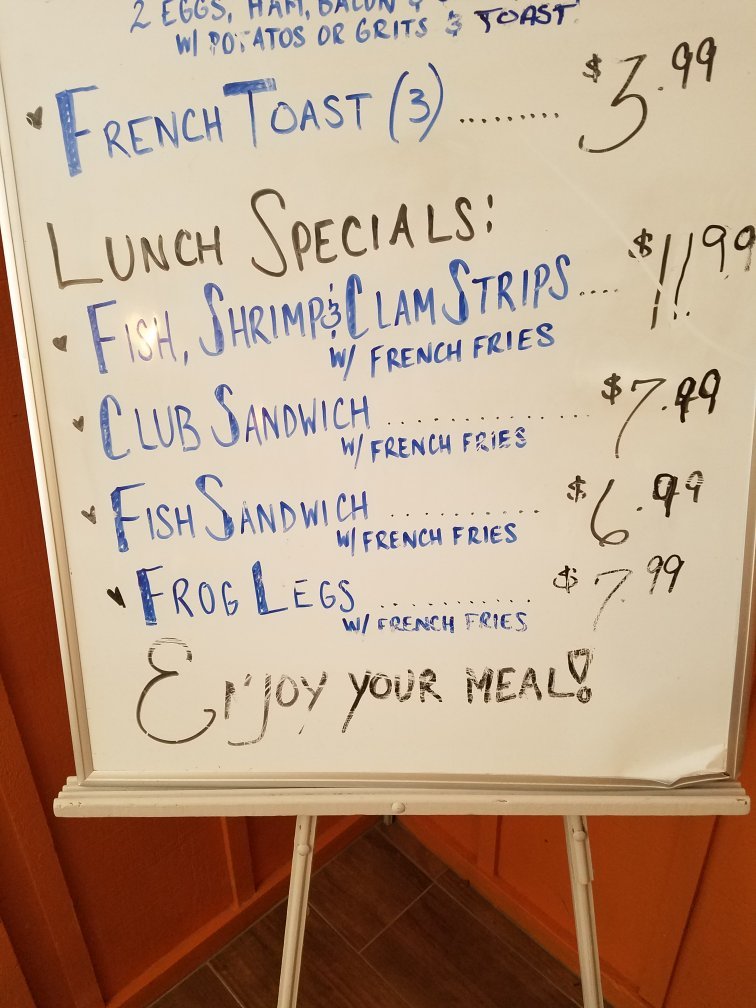 2 EGGS, HAM, BACON &
W/ POTATOS OR GRITS & TOAST
FRENCH TOAST (3) ......... $3.99
LUNCH SPECIALS:
FISH, SHRIMP & CLAM STRIPS .... $11.99
W/ FRENCH FRIES
CLUB SANDWICH .............. $7.99
W/ FRENCH FRIES
FISH SANDWICH .......... $6.99
W/ FRENCH FRIES
FROG LEGS ........... $7.99
W/ FRENCH FRIES
ENJOY YOUR MEAL!